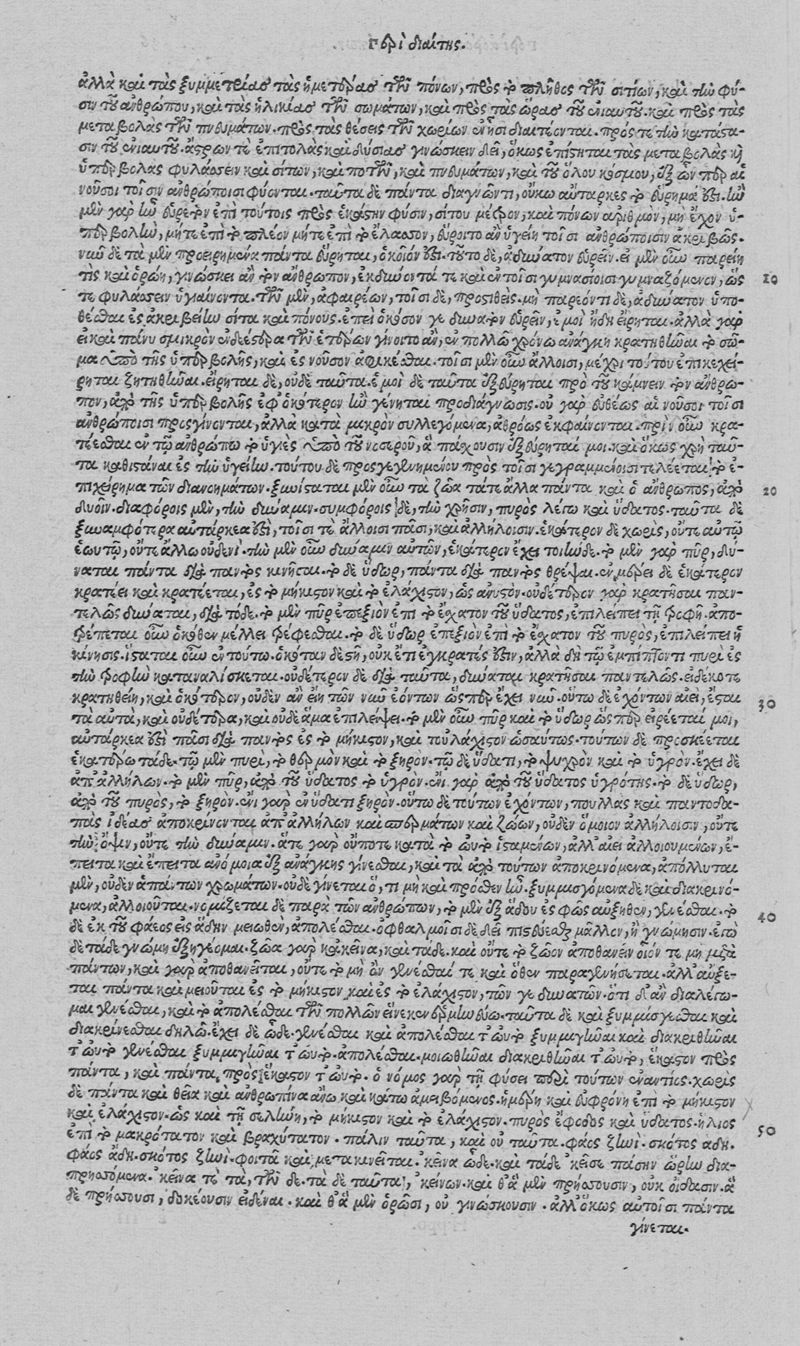 Περὶ διαίτης.
ἀλλὰ καὶ τὰς ξυμμετρίας τὰς ἡμετέρας τῶν πόνων, πρὸς τὸ πλῆθος τῶν σιτίων, καὶ τὴν φύ-
σιν τοῦ ἀνθρώπου, καὶ τὰς ἡλικίας τῶν σωμάτων, καὶ πρὸς τὰς ὥρας τοῦ ἐνιαυτοῦ. καὶ πρὸς τὰς
μεταβολὰς τῶν πνευμάτων. πρὸς τὰς θέσεις τῶν χωρίων ἐνῇσι διαιτέονται. πρός τε τὴν κατάστα-
σιν τοῦ ἐνιαυτοῦ. ἄστρων τε ἐπιτολὰς καὶ δύσιας γινώσκειν δεῖ, ὅκως ἐπίστηται τὰς μεταβολὰς καὶ
ὑπερβολὰς φυλάσσειν καὶ σίτων, καὶ ποτῶν, καὶ πνευμάτων, καὶ τοῦ ὅλου κόσμου, ἐξ ὧν περ αἱ
νοῦσοι τοῖσιν ἀνθρώποισι φύονται. ταῦτα δὲ πάντα διαγνώντι, οὔκω αὔταρκες τὸ εὕρημά ἐστι. ἢν
μὲν γὰρ ἦν εὑρετὸν ἐπὶ τούτοις πρὸς ἑκάστην φύσιν, σίτου μέτρον, καὶ πόνων ἀριθμὸν, μὴ ἔχον ὑ-
περβολὴν, μήτε ἐπὶ τὸ πλέον μήτε ἐπὶ τὸ ἔλασσον, εὕροιτο ἂν ὑγείη τοῖσι ἀνθρώποισιν ἀκριβῶς.
νῦν δὲ τὰ μὲν προειρημένα πάντα εὕρηται, ὁκοῖόν ἐστι. τοῦτο δὲ, ἀδύνατον εὑρεῖν. εἰ μὲν οὖν παρείη
τὶς καὶ ὁρῴη, γινώσκει ἂν τὸν ἄνθρωπον, ἐκδύοντά τε καὶ ἐν τοῖσι γυμνασίοισι γυμναζόμενον, ὥς 10
τε φυλάσσειν ὑγιαίνοντα. τῶν μὲν, ἀφαιρέων, τοῖσι δὲ, προστιθεὶς. μὴ παρεόντι δὲ, ἀδύνατον ὑπο-
θέσθαι ἐς ἀκριβείην σίτα καὶ πόνους. ἐπεὶ ὁκόσον γε δυνατὸν εὑρεῖν, ἐμοὶ ἤδη εἴρηται. ἀλλὰ γὰρ
εἰ καὶ πάνυ σμικρὸν ἐνδέεστερα τῶν ἑτέρων γίνοιτο ἂν, ἐν πολλῷ χρόνῳ ἀνάγκη κρατηθῆναι τὸ σῶ-
μα ὑπὸ τῆς ὑπερβολῆς, καὶ ἐς νοῦσον ἀφικέσθαι. τοῖσι μὲν οὖν ἄλλοισι, μέχρι τούτου ἐπικεχεί-
ρηται ζητηθῆναι. εἴρηται δὲ, οὐδὲ ταῦτα. ἐμοὶ δὲ ταῦτα ἐξεύρηται πρὸ τοῦ κάμνειν τὸν ἄνθρω-
πον, ἀπὸ τῆς ὑπερβολῆς ἐφ' ὁκότερον ἢν γένηται προδιάγνωσις. οὐ γὰρ εὐθέως αἱ νοῦσοι τοῖσι
ἀνθρώποισι προσγίνονται, ἀλλὰ κατὰ μικρὸν συλλεγόμεναι, ἀθρόως ἐκφαίνονται. πρὶν οὖν κρα-
τέεσθαι ἐν τῷ ἀνθρώπῳ τὸ ὑγιὲς ὑπὸ τοῦ νοσεροῦ, ἃ πάσχουσιν ἐξεύρηταί μοι. καὶ ὅκως χρὴ ταῦ-
τα καθιστάναι ἐς τὴν ὑγείην. τούτου δὲ προσγεγενημένου πρὸς τοῖσι γεγραμμένοισι τελέεται τὸ ἐ-
πιχείρημα τῶν διανοημάτων. ξυνίσταται μὲν οὖν τὰ ζῶα τά τε ἄλλα πάντα καὶ ὁ ἄνθρωπος, ἀπὸ 20
δυοῖν. διαφόροις μὲν, τὴν δύναμιν. συμφόροις δὲ, τὴν χρῆσιν, πυρὸς λέγω καὶ ὕδατος. ταῦτα δὲ
ξυναμφότερα αὐτάρκεά ἐστι, τοῖσι τε ἄλλοισι πᾶσι, καὶ ἀλλήλοισιν. ἑκάτερον δὲ χωρὶς, οὔτε αὐτῷ
ἑωυτῷ, οὔτε ἄλλῳ οὐδενί. τὴν μὲν οὖν δύναμιν αὐτῶν, ἑκάτερον ἔχει τοιήνδε. τὸ μὲν γὰρ πῦρ, δύ-
ναται πάντα διὰ παντὸς κινῆσαι. τὸ δὲ ὕδωρ, πάντα διὰ παντὸς θρέψαι. ἐν μέρει δὲ ἑκάτερον
κρατέει καὶ κρατέεται, ἐς τὸ μήκιστον καὶ τὸ ἐλάχιστον, ὡς ἀνυστόν. οὐδέτερον γὰρ κρατῆσαι παν-
τελῶς δύναται, διὰ τόδε. τὸ μὲν πῦρ ἐπεξιὸν ἐπὶ τὸ ἔσχατον τοῦ ὕδατος, ἐπιλείπει τῇ τροφῇ. ἀπο-
τρέπεται οὖν ὁκόθεν μέλλει τρέφεσθαι. τὸ δὲ ὕδωρ ἐπεξιὸν ἐπὶ τὸ ἔσχατον τοῦ πυρὸς, ἐπιλείπει ἡ
κίνησις. ἵσταται οὖν ἐν τούτῳ. ὁκόταν δὲ στῇ, οὐκ ἔτι ἐγκρατές ἐστιν, ἀλλὰ δὴ τῷ ἐμπίπτοντι πυρὶ ἐς
τὴν τροφὴν καταναλίσκεται. οὐδέτερον δὲ διὰ ταῦτα, δύναται κρατῆσαι παντελῶς. εἰ δέ κοτε
κρατηθείη, καὶ ὁκότερον, οὐδὲν ἂν εἴη τῶν νῦν ἐόντων ὥσπερ ἔχει νῦν. οὕτω δὲ ἐχόντων αἰεὶ, ἔσται 30
τὰ αὐτὰ, καὶ οὐδέτερα, καὶ οὐδὲ ἅμα ἐπιλείψει. τὸ μὲν οὖν πῦρ καὶ τὸ ὕδωρ ὥσπερ εἰρέεταί μοι,
αὐτάρκεά ἐστι πᾶσι διὰ παντὸς ἐς τὸ μήκιστον, καὶ τοὐλάχιστον ὡσαύτως. τούτων δὲ προσκέεται
ἑκατέρῳ τάδε. τῷ μὲν πυρὶ, τὸ θερμὸν καὶ τὸ ξηρόν. τῷ δὲ ὕδατι, τὸ ψυχρὸν καὶ τὸ ὑγρὸν. ἔχει δὲ
ἀπ' ἀλλήλων. τὸ μὲν πῦρ, ἀπὸ τοῦ ὕδατος τὸ ὑγρόν. ἔνι γὰρ ἀπὸ τοῦ ὕδατος ὑγρότης. τὸ δὲ ὕδωρ,
ἀπὸ τοῦ πυρὸς, τὸ ξηρόν. ἔνι γὰρ ἐν ὕδατι ξηρόν. οὕτω δὲ τούτων ἐχόντων, πουλλὰς καὶ παντοδα-
πὰς ἰδέας ἀποκρίνονται ἀπ' ἀλλήλων καὶ σπερμάτων καὶ ζώων, οὐδὲν ὅμοιον ἀλλήλοισιν, οὔτε
τὴν ὄψιν, οὔτε τὴν δύναμιν. ἅτε γὰρ οὔποτε κατὰ τὸ ὠυτὸ ἱσταμένων, ἀλλ' αἰεὶ ἀλλοιουμένων, ἔ-
πειτα καὶ ἔπειτα ἀνόμοια ἐξ ἀνάγκης γίνεσθαι, καὶ τὰ ἀπὸ τούτων ἀποκρινόμενα, ἀπόλλυται
μὲν, οὐδὲν ἁπάντων χρωμάτων. οὐδὲ γίνεται ὅ, τι μὴ καὶ πρόσθεν ἦν. ξυμμισγόμενα δὲ καὶ διακρινό-
μενα, ἀλλοιοῦται. νομίζεται δὲ παρὰ τῶν ἀνθρώπων, τὸ μὲν ἐξ ᾅδου ἐς φῶς αὐξηθὲν, γενέσθαι. τὸ 40
δὲ ἐκ τοῦ φάεος εἰς ᾅδην μειωθὲν, ἀπολέσθαι. ὀφθαλμοῖσι δὲ δεῖ πιστεύεσθαι μᾶλλον, ἢ γνώμησιν. ἐγὼ
δὲ τάδε γνώμῃ ἐξηγέομαι. ζῶα γὰρ κἀκεῖνα, καὶ τάδε. καὶ οὔτε τὸ ζῶον ἀποθανεῖν οἷόν τε μὴ μετὰ
πάντων, καὶ γὰρ ἀποθανεῖται, οὔτε τὸ μὴ ὂν γενέσθαι τε καὶ ὅθεν παραγενήσεται. ἀλλ' αὔξε-
ται πάντα καὶ μειοῦται ἐς τὸ μήκιστον καὶ ἐς τὸ ἐλάχιστον, τῶν γε δυνατῶν. ὅτι δ' ἂν διαλέγω-
μαι γενέσθαι, καὶ τὸ ἀπολέσθαι τῶν πολλῶν εἵνεκεν ἑρμηνεύω. ταῦτα δὲ καὶ ξυμμίσγεσθαι καὶ
διακρίνεσθαι δηλῶ. ἔχει δὲ ὧδε. γενέσθαι καὶ ἀπολέσθαι τ' ὠυτὸ ξυμμιγῆναι καὶ διακριθῆναι
τ' ὠυτὸ γενέσθαι ξυμμιγῆναι τ' ὠυτὸ. ἀπολέσθαι. μειωθῆναι διακριθῆναι τ' ὠυτὸ, ἕκαστον πρὸς
πάντα, καὶ πάντα, πρὸς ἕκαστον τ' ὠυτὸ. ὁ νόμος γὰρ τῇ φύσει περὶ τούτων ἐναντίος. χωρεῖς
δὲ πάντα καὶ θεῖα καὶ ἀνθρώπινα ἄνω καὶ κάτω ἀμειβόμενος. ἡμέρη καὶ εὐφρόνη ἐπὶ τὸ μήκιστον
καὶ ἐλάχιστον. ὡς καὶ τῇ σελήνῃ, τὸ μήκιστον καὶ τὸ ἐλάχιστον. πυρὸς ἔφοδος καὶ ὕδατος. ἥλιος
ἐπὶ τὸ μακρότατον καὶ βραχύτατον. πάλιν ταῦτα, καὶ οὐ ταῦτα. φάος ζηνὶ. σκότος ἀδῃ. 50
φάος ἀδῃ. σκότος ζηνὶ. φοιτᾶ καὶ μετακινεῖται. κεῖνα ὧδε. καὶ τάδε κεῖσε πᾶσην ὥρην δια-
πρησσόμενα. κεῖνα τὲ τὰ, τῶν δὲ. τὰ δὲ ταῦτα, κείνων. καὶ θ' ἃ μὲν πρήσσουσιν, οὐκ οἴδασιν. ἃ
δὲ πρήσσουσι, δοκέουσιν εἰδέναι. καὶ θ' ἃ μὲν ὁρῶσι, οὐ γινώσκουσιν. ἀλλ' ὅκως αὐτοῖσι πάντα
γίνεται.